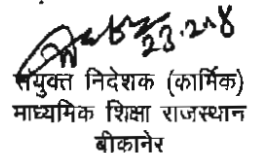 23.2.18
संयुक्त निदेशक (कार्मिक)
माध्यमिक शिक्षा राजस्थान
बीकानेर